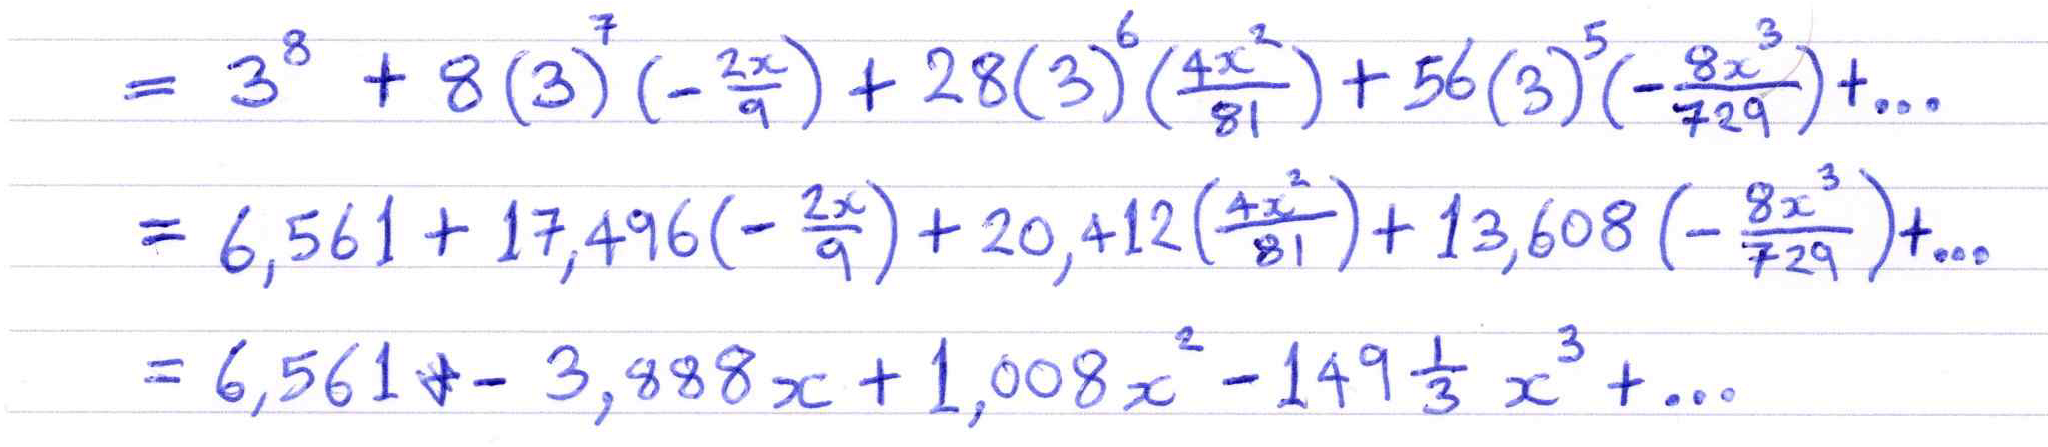 = 3⁸ + 8(3)⁷(-2x/9) + 28(3)⁶(4x²/81) + 56(3)⁵(-8x³/729) + ...
= 6,561 + 17,496(-2x/9) + 20,412(4x²/81) + 13,608(-8x³/729) + ...
= 6,561 - 3,888x + 1,008x² - 149 1/3 x³ + ...